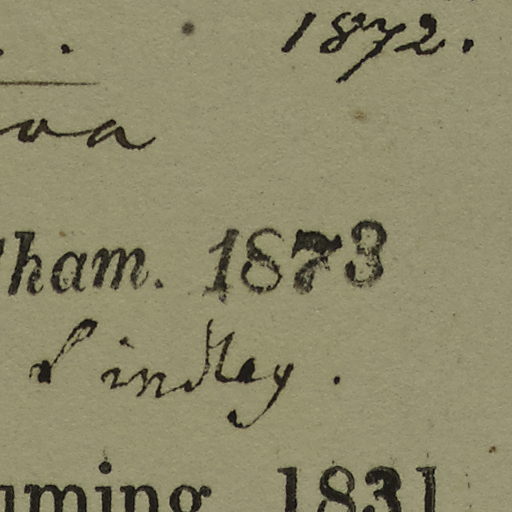 1872.
ham. 1873
Lindley.
uming 1831